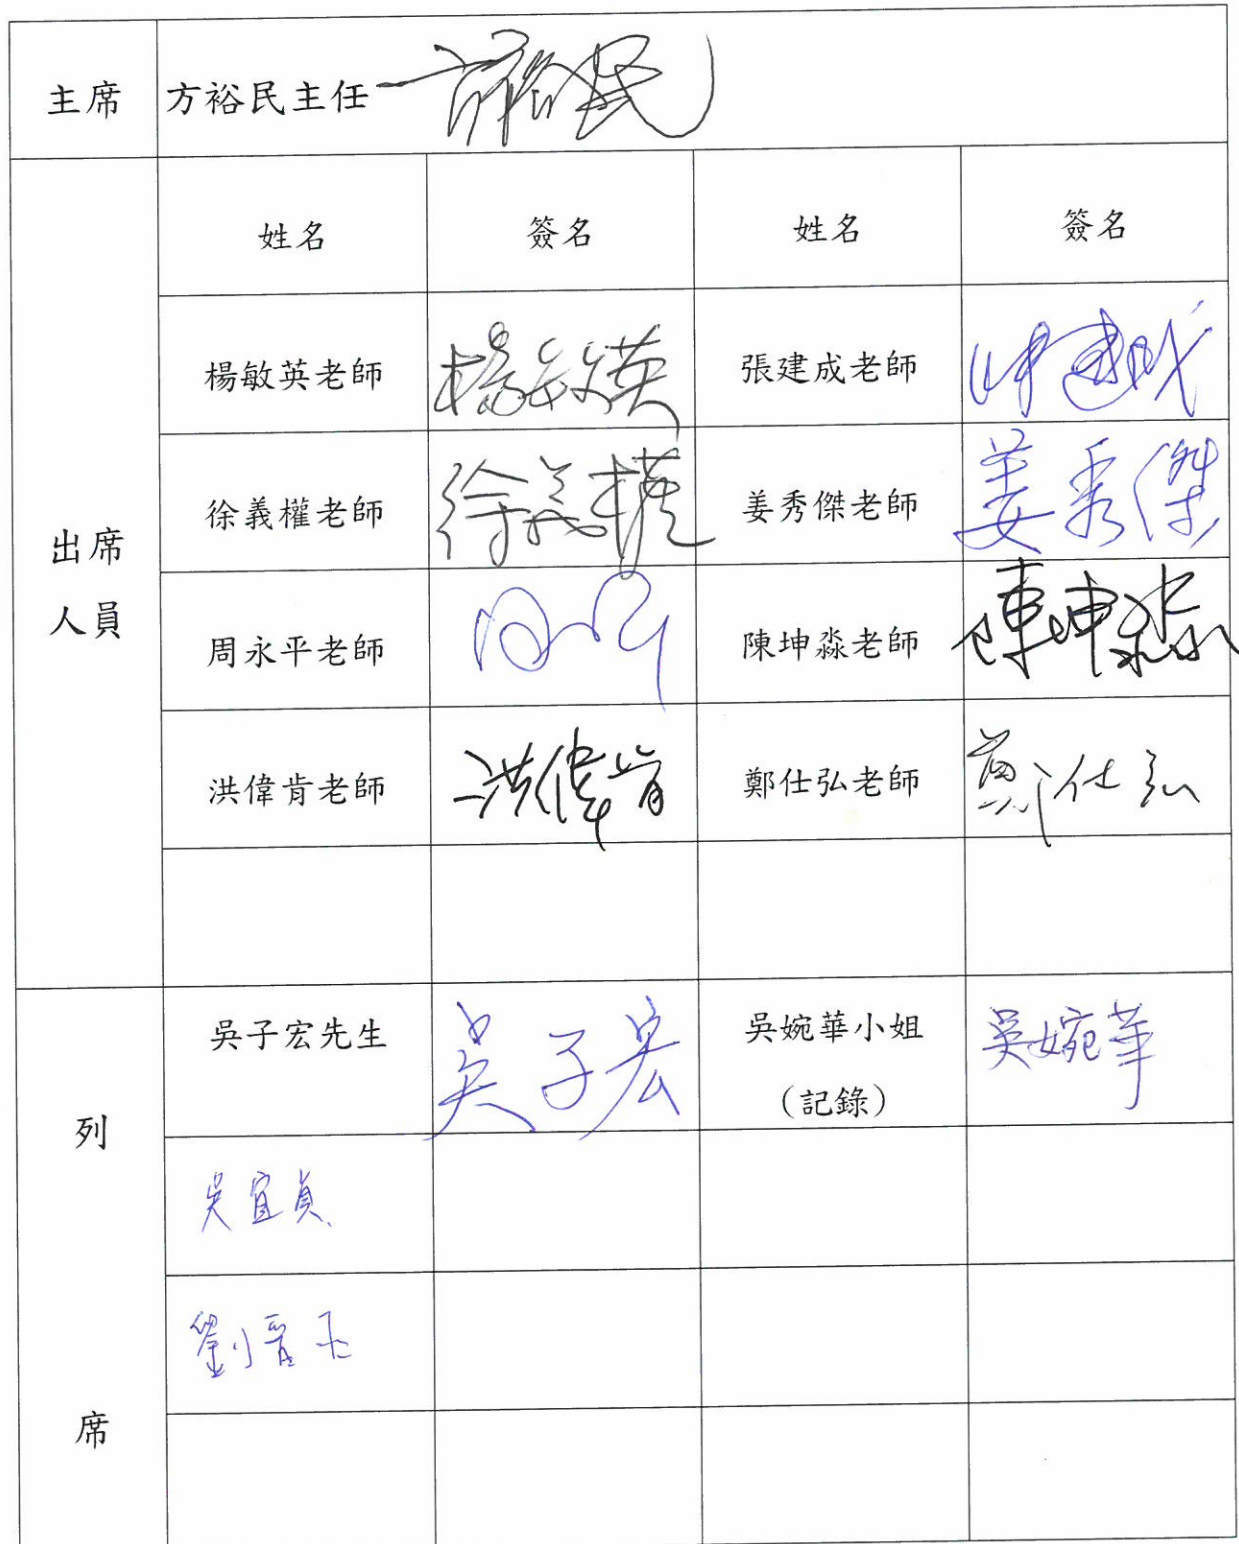 主席 方裕民主任 方裕民
姓名 簽名 姓名 簽名
楊敏英老師 楊敏英 張建成老師 張建成
徐義權老師 徐義權 姜秀傑老師 姜秀傑
出席
人員
周永平老師 陳坤淼老師 陳坤淼
洪偉肯老師 洪偉肯 鄭仕弘老師 鄭仕弘
吳子宏先生 吳子宏 吳婉華小姐 吳婉華
(記錄)
列
吳宜貞
劉
席